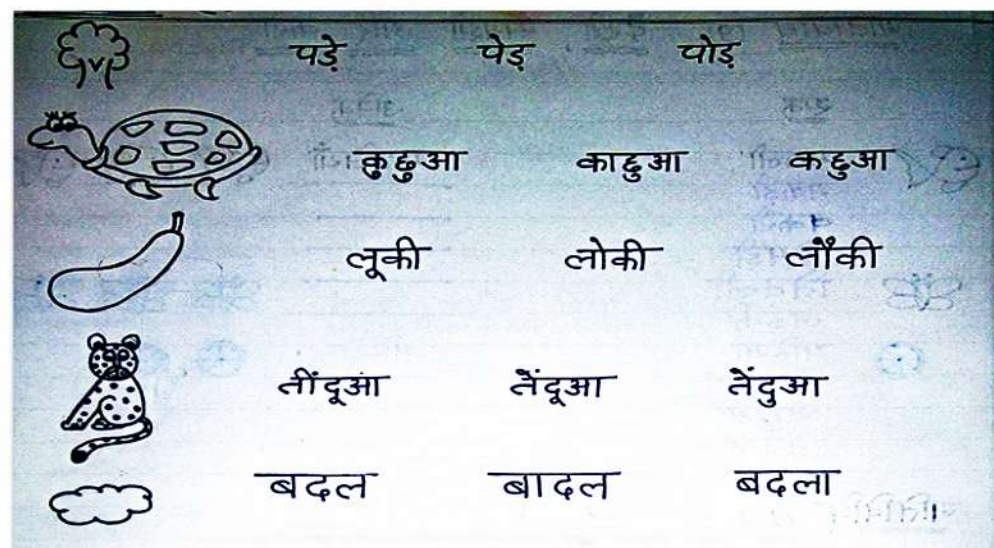 पड़े पेड़ पोड़
कुछुआ काछुआ कछुआ
लूकी लोकी लौकी
तींदूआ तेंदूआ तेंदुआ
बदल बादल बदला